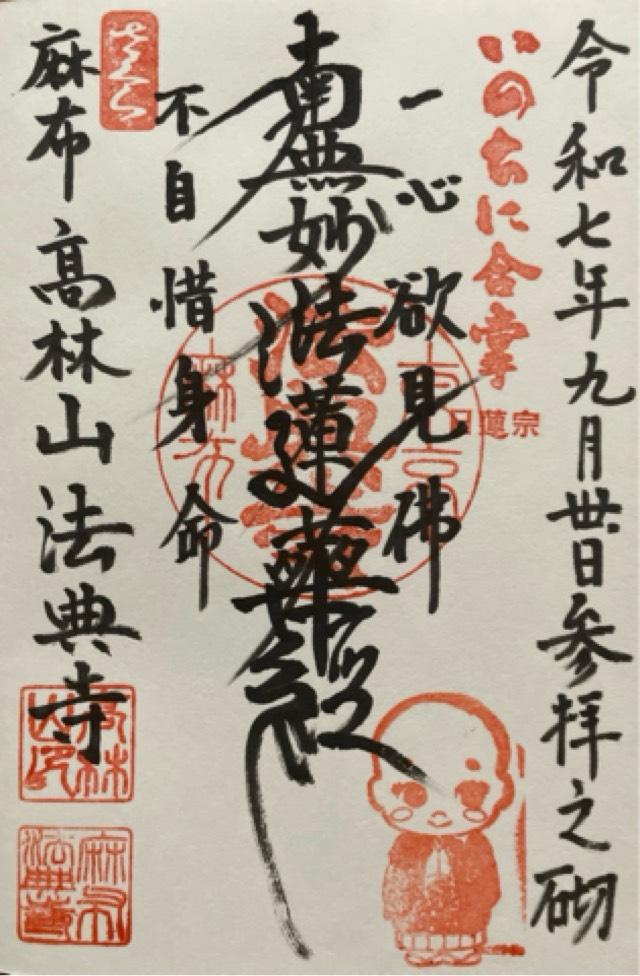 令和七年九月卅日参拝之砌
いのちに合掌
日蓮宗
一心欲見佛
南無妙法蓮華経
不自惜身命
さくら
麻布高林山法典寺